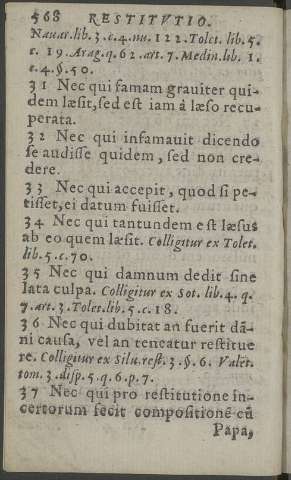 568 RESTITVTIO.
Nauar.lib.3.c.4.nu.122.Tolet.lib.5.
c.19.Arag.q.62.art.7.Medin.lib.1.
c.4.§.50.
31 Nec qui famam grauiter qui-
dem læsit, sed est iam à læso recu-
perata.
32 Nec qui infamauit dicendo
se audisse quidem, sed non cre-
dere.
33 Nec qui accepit, quod si pe-
tisset, ei datum fuisset.
34 Nec qui tantundem est læsus
ab eo quem læsit. Colligitur ex Tolet.
lib.5.c.70.
35 Nec qui damnum dedit sine
lata culpa. Colligitur ex Sot. lib.4.q.
7.art.3.Tolet.lib.5.c.18.
36 Nec qui dubitat an fuerit dã-
ni causa, vel an teneatur restitue
re. Colligitur ex Silu.rest.3.§.6. Valet.
tom.3.disp.5.q.6.p.7.
37 Nec qui pro restitutione in-
certorum fecit compositionẽ cũ
Papa,